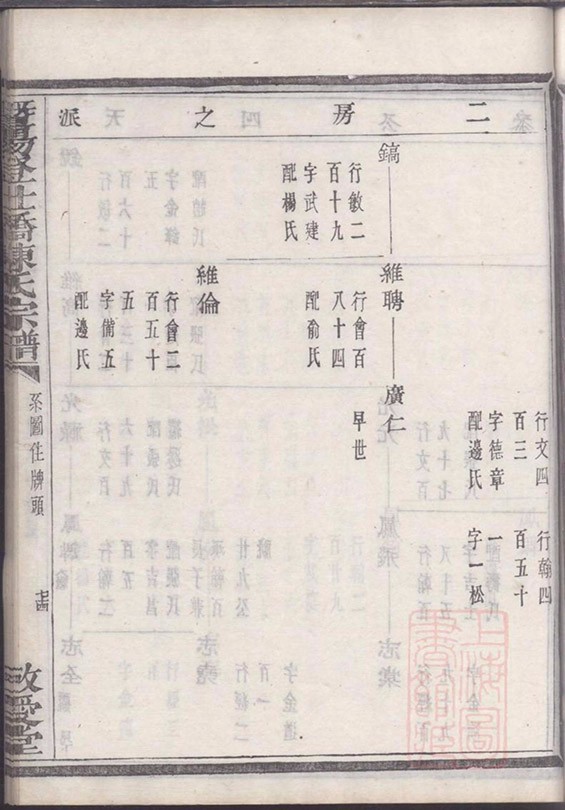 二房之派
行文四
百三
字德章
配邊氏
行翰四
百五十
一
字一松
鎬
行敏二
百十九
字武建
配楊氏
維聘
行會百
八十四
配俞氏
廣仁
早世
維倫
行會二
百五十
五
字備五
配邊氏
暨陽登仕橋陳氏宗譜
系圖住牌頭
敬愛堂